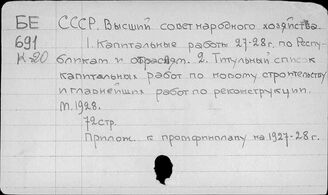 БЕ
691
К-20
СССР. Высший совет народного хозяйства
1. Капитальные работы 27-28г. по Респу-
бликам и отраслям. 2. Титульный список
капитальных работ по новому строительству
и главнейших работ по реконструкции.
М. 1928.
72стр.
Прилож. к промфинплану на 1927-28г.